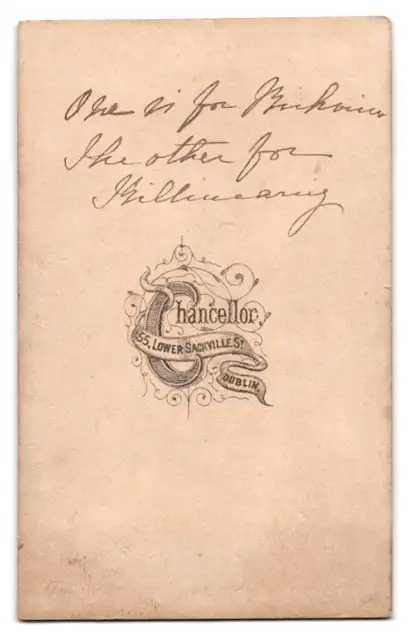 One is for
The other for
Killincarrig
Chancellor,
55, LOWER SACKVILLE ST
DUBLIN.